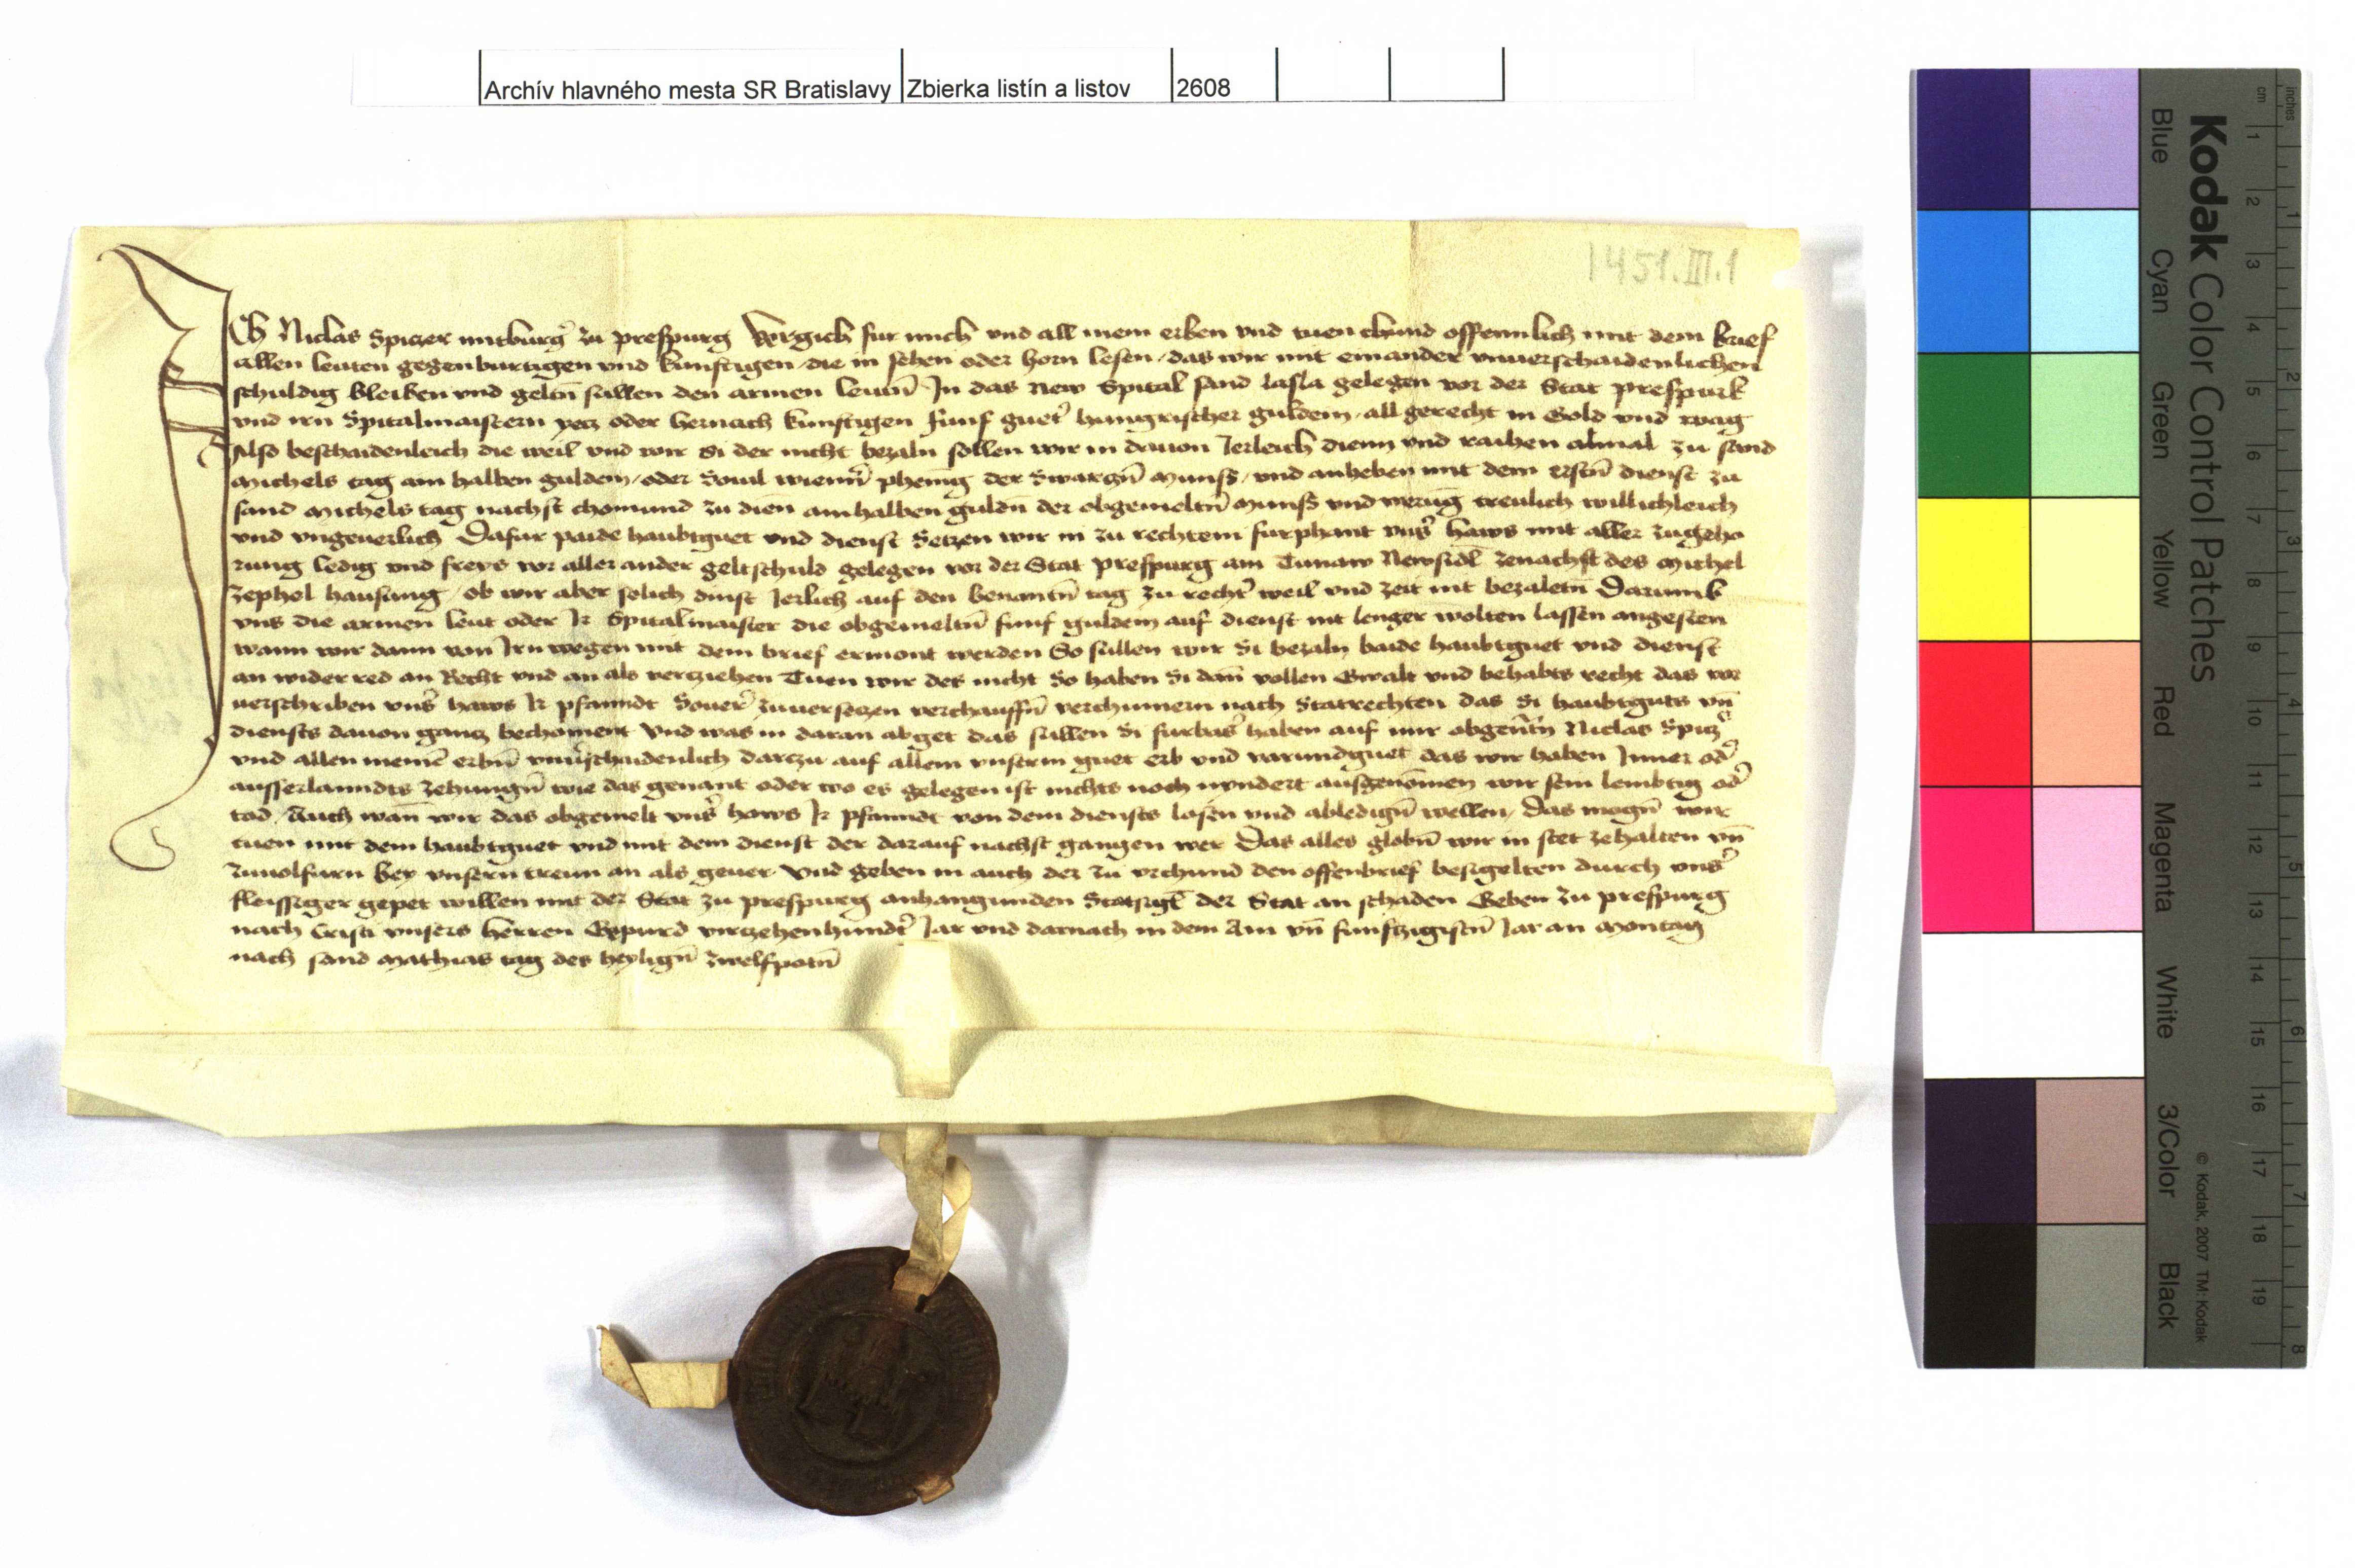 Archív hlavného mesta SR Bratislavy Zbierka listín a listov 2608
1451.III.1
Ich Niclas Spiczer mitburg̉ zu prespurg vergich fur mich vnd all mein erben vnd tuen chund offennlich mit dem brief
allen leuten gegenburtigen vnd kunftigen die in sehen oder horn lesen das wir mit einander vnuerschaidenlichen
schuldig bleiben vnd geltn̄ sullen den armen leutn̄ In das new Spital sand lasla gelegen vor der Stat prespurk
vnd irn Spitalmaistern yecz oder hernach kunftigen funf guet̉ hungrischer guldein all gerecht in Gold vnd wag
Also beschaidenleich die weil vnd wir si der nicht bezaln sollen wir in dauon Jerleich dienn vnd raihen almal zu sand
Michels tag ain halben guldein oder Souil wienn̉ phenīg der Swarczn̄ Munss vnd anheben mit dem erstn̄ dienst zu
sand Michels tag nachst chomund zu dien ain halben guldn̄ der obgemeltn̄ Munss vnd werūg treulich willichleich
vnd vngeuerlich Dafur paide haubtguet vnd dienst Setzen wir in zu rechtem furphant vns̉ haws mit aller zugeho
rung ledig vnd freys vor aller ander geltschuld gelegen vor der Stat prespurg am Tunaw Newsidl zenachst des Michel
Zephel hausung ob wir aber solich dinst Jerlich auf den benantn̄ tag zu recht̉ weil vnd zeit nit bezaletn̄ Darumb
vns die armen leut oder Ir Spitalmaister die obgemeltn̄ funf guldein auf dienst nit lenger wolten lassen angesten
wann wir dann von Irn wegen mit dem brief ermont werden So sullen wir Si bezaln baide haubtguet vnd dienst
an wider red an Recht vnd an als verczichen Tuen wir des nicht So haben Si dan̄ vollen Gwalt vnd behabts recht das vor
uerschriben vns̉ haws Ir pfanndt Souer̉ zuuersetzen verchauffn̄ verchumern nach Statrechten das Si haubtguts vn̄
diensts dauon gancz bechoment Vnd was in daran abget das sullen Si furbas̉ haben auf mir obgen̄tn̄ Niclas Spicz̉
vnd allen meinē erbn̄ vnủschaidenlich darczu auf allem vnserm guet erb vnd varundguet das wir haben Inner od̉
ausserlanndts zehungn̄ wie das genant oder wo es gelegen ist nichts noch nyndert ausgenomen wir sein lembtig od̉
tod Auch wan̄ wir das obgemelt vns̉ haws Ir pfanndt von dem diensts losen vnd abledign̄ wellen Das mogn̄ wir
tuen mit dem haubtguet vnd mit dem dienst der darauf nachst gangen wer Das alles globn̄ wir in stet zehalten vn̄
zuuolfurn bey vnsern treun an als geuer Vnd geben in auch des zu vrchund den offenbrief besigelten durch vns̉
fleissiger gepet willen mit der Stat zu prespurg anhangunden Statsigl̄ der Stat an schaden Geben zu prespurg
nach Cristi vnsers herren Gepurd virczehenhundt̉ Jar vnd darnach in dem Ain vn̄ funfczigistn̄ Jar an Montag
nach sand Mathias tag des heylign̄ zwelfpotn̄
Kodak Color Control Patches
Blue Cyan Green Yellow Red Magenta White 3/Color Black
© Kodak, 2007 TM: Kodak
cm 1 2 3 4 5 6 7 8 9 10 11 12 13 14 15 16 17 18 19
inches 1 2 3 4 5 6 7 8